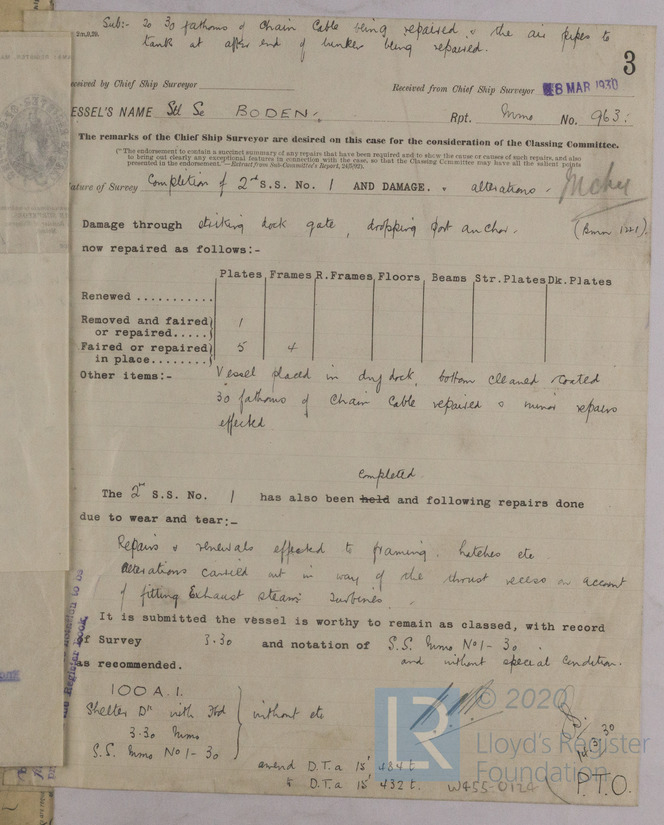 Sub:- to 30 fathoms of Chain Cable being repaired & the air pipes to
tank at after end of bunker being repaired.
2m,9,29.
3
eceived by Chief Ship Surveyor
Received from Chief Ship Surveyor
8 MAR 1930
ESSEL'S NAME Stl Sc BODEN.
Rpt. Mmo No. 963:
The remarks of the Chief Ship Surveyor are desired on this case for the consideration of the Classing Committee.
(" The endorsement to contain a succinct summary of any repairs that have been required and to show the cause or causes of such repairs, and also
to bring out clearly any exceptional features in connection with the case, so that the Classing Committee may have all the salient points
presented in the endorsement."—Extract from Sub-Committee's Report, 24/5/92).
ature of Survey Completion of 2nd S.S. No. 1 AND DAMAGE. & alterations.
Damage through striking dock gate, dropping port anchor.
now repaired as follows:-
Plates Frames R.Frames Floors Beams Str.Plates Dk.Plates
Renewed ...........
Removed and faired
or repaired..... 1
Faired or repaired
in place........ 5 4
Other items:- Vessel placed in dry dock, bottom cleaned & coated
30 fathoms of Chain Cable repaired & minor repairs
effected
completed
The 2nd S.S. No. 1 has also been held and following repairs done
due to wear and tear:-
Repairs & renewals effected to framing, hatches etc
Alterations carried out in way of the thrust recess on account
of fitting Exhaust steam turbines.
It is submitted the vessel is worthy to remain as classed, with record
of Survey 3.30 and notation of S.S. Mmo No 1- 30
as recommended. and without special condition.
100 A.1.
Shelter Dk with Fbd
3.30 Mmo
S.S. Mmo No 1- 30
without etc
amend D.T.a 15' 484t
to D.T.a 15' 432t.
14.3.30
P.T.O.
W455-0124
© 2020
LR
Lloyd's Register
Foundation